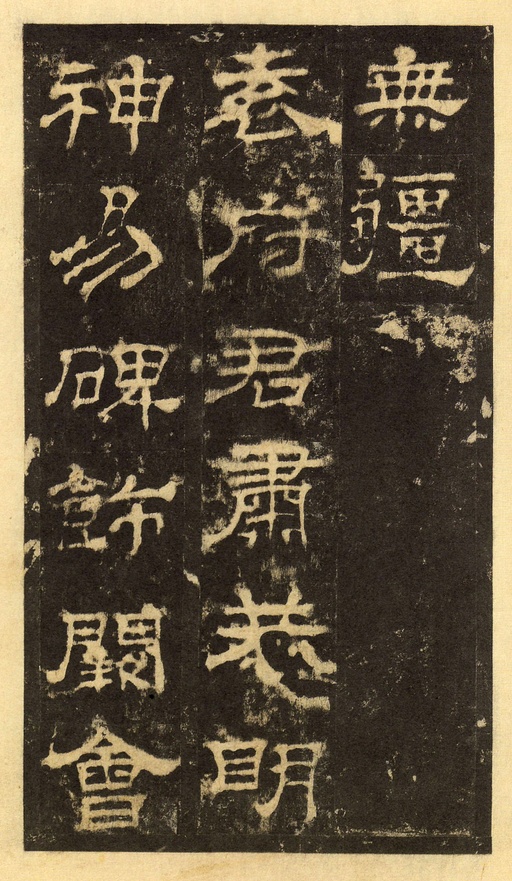 無疆
袁府君肅恭明
神易碑飾闕會